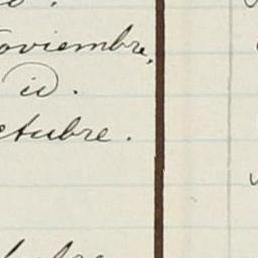 oviembre,
id.
ctubre.